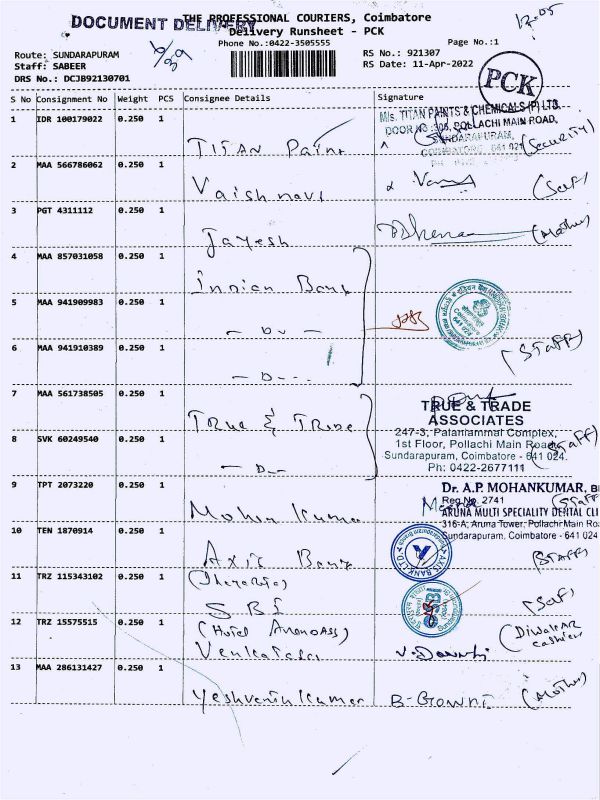 DOCUMENT DELIVERY
THE PROFESSIONAL COURIERS, Coimbatore
Delivery Runsheet - PCK
Phone No.:0422-3505555
Page No.:1
Route: SUNDARAPURAM
Staff: SABEER
DRS No.: DCJB92130701
RS No.: 921307
RS Date: 11-Apr-2022
PCK
S No Consignment No Weight PCS Consignee Details Signature
1 IDR 100179022 0.250 1
TITAN Paint
M/s. TITAN PAINTS & CHEMICALS (P) LTD.
DOOR NO :305, POLLACHI MAIN ROAD,
SUNDARAPURAM,
COIMBATORE - 641 021
(Security)
2 MAA 566786062 0.250 1
Vaishnavi
(Self)
3 PGT 4311112 0.250 1
Jayesh
(Mother)
4 MAA 857031058 0.250 1
Indian Bank
5 MAA 941909983 0.250 1
6 MAA 941910389 0.250 1
(Staff)
7 MAA 561738505 0.250 1
True & Trade
TRUE & TRADE
ASSOCIATES
247-3, Palaniammal Complex,
1st Floor, Pollachi Main Road,
Sundarapuram, Coimbatore - 641 024.
Ph: 0422-2677111
(Staff)
8 SVK 60249540 0.250 1
9 TPT 2073220 0.250 1
Mohan Kumar
Dr. A.P. MOHANKUMAR,
Reg No. 2741
ARUNA MULTI SPECIALITY DENTAL CLI
316-A, Aruna Tower, Pollachi Main Roa
Sundarapuram, Coimbatore - 641 024
(Staff
10 TEN 1870914 0.250 1
Axis Bank
AXIS BANK LTD
(Staff)
11 TRZ 115343102 0.250 1
SBI
12 TRZ 15575515 0.250 1
(Diwakar
cashier
13 MAA 286131427 0.250 1
Yeshvanth Kumar
B-Gowri
(Mother)